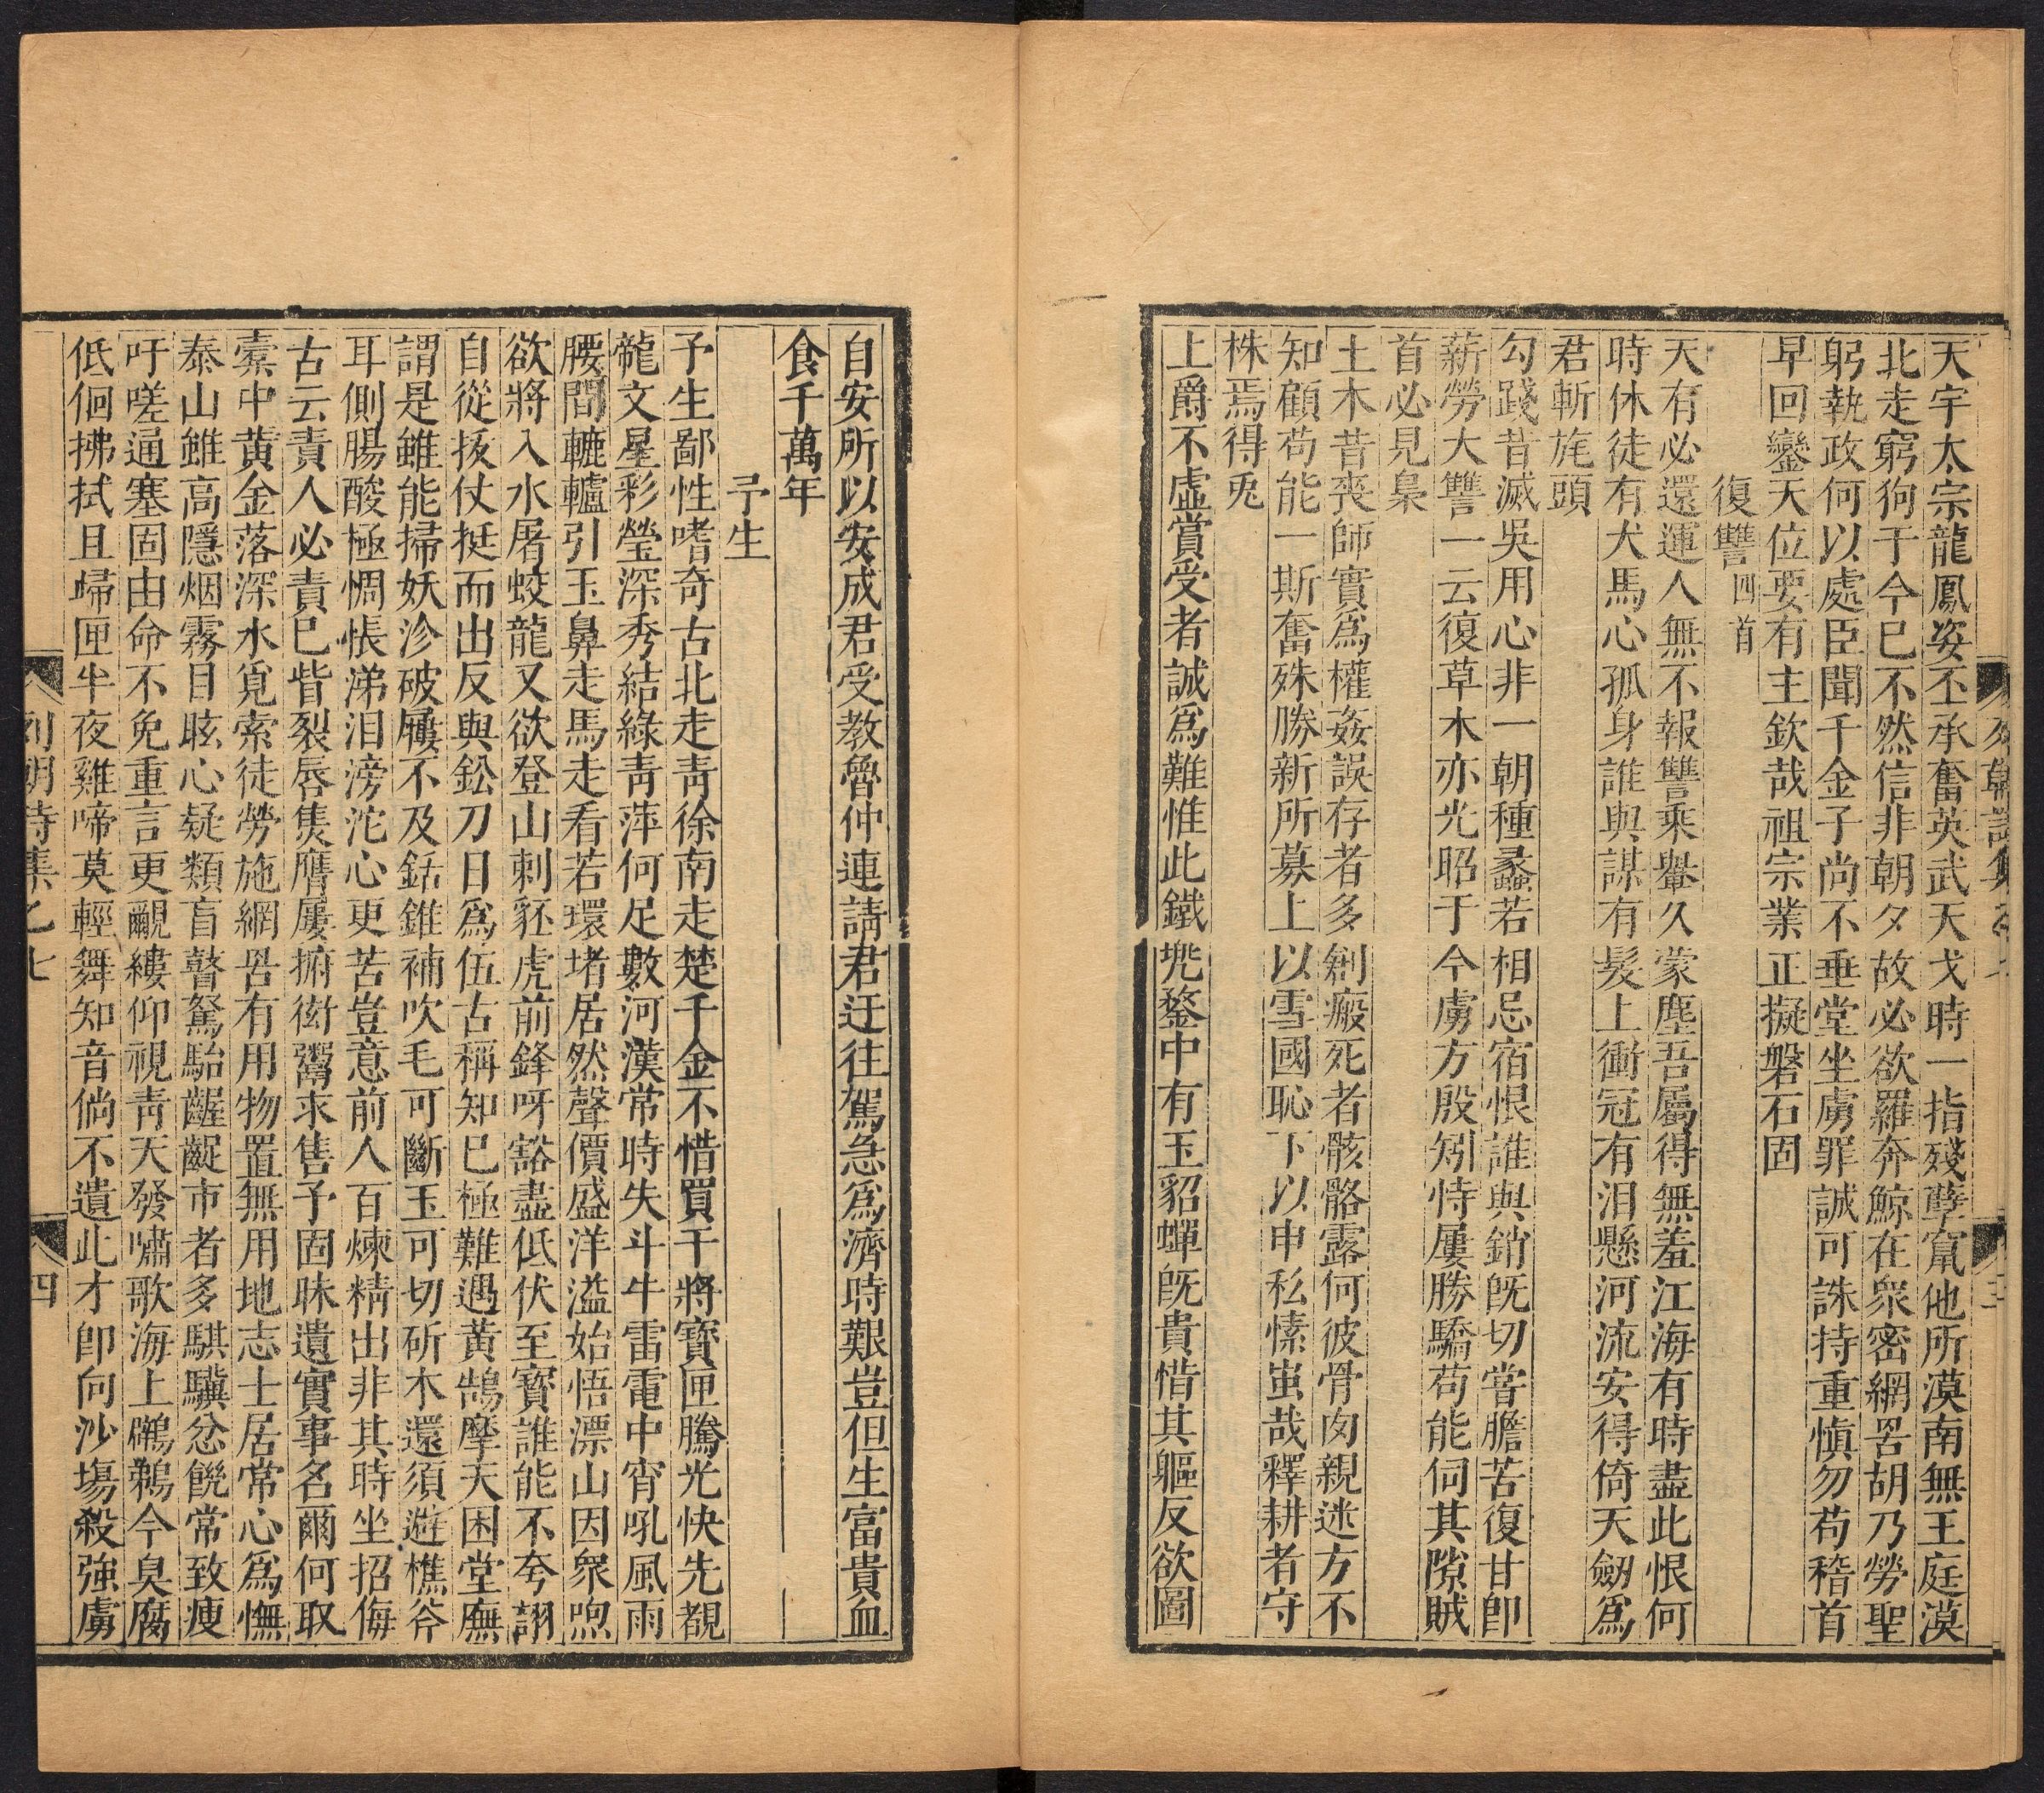 天宇太宗龍鳳姿丕承奮英武天戈時一指殘孽竄他所漠南無王庭漠
北走窮狗于今已不然信非朝夕故必欲羅奔鯨在衆密網罟胡乃勞聖
躬執政何以處臣聞千金子尚不垂堂坐虜罪誠可誅持重慎勿苟稽首
早回鑾天位要有主欽哉祖宗業正擬磐石固
復讐四首
天有必還運人無不報讐乘轝久蒙塵吾屬得無羞江海有時盡此恨何
時休徒有犬馬心孤身誰與謀有髮上衝冠有泪懸河流安得倚天劒爲
君斬旄頭
勾踐昔滅吳用心非一朝種蠡若相忌宿恨誰與銷旣切嘗膽苦復甘卽
薪勞大讐一云復草木亦光昭于今虜方殷矧恃屢勝驕苟能伺其隙賊
首必見梟
土木昔喪師實爲權姦誤存者多創瘢死者骸骼露何彼骨肉親迷方不
知顧苟能一斯奮殊勝新所募上以雪國恥下以申私愫蚩哉釋耕者守
株焉得兎
上爵不虛賞受者誠爲難惟此鐵兠鍪中有玉貂蟬旣貴惜其軀反欲圖
自安所以安成君受教魯仲連請君迂往駕急爲濟時艱豈但生富貴血
食千萬年
予生
予生鄙性嗜奇古北走青徐南走楚千金不惜買干將寶匣騰光快先覩
龍文星彩瑩深秀結綠青萍何足數河漢常時失斗牛雷電中宵吼風雨
腰間轆轤引玉鼻走馬走看若環堵居然聲價盛洋溢始悟漂山因衆喣
欲將入水屠蛟龍又欲登山刺豾虎前鋒呀豁盡低伏至寶誰能不夸詡
自從扳仗挺而出反與鈆刀日爲伍古稱知已極難遇黃鵠摩天困堂廡
謂是雖能掃妖沴破屨不及銛錐補吹毛可斷玉可切斫木還須遊樵斧
耳側腸酸極惆悵涕泪滂沱心更苦豈意前人百煉精出非其時坐招侮
古云責人必責巳眥裂唇焦膺屢撫街鬻求售予固昧遺實事名爾何取
橐中黃金落深水覓索徒勞施網罟有用物置無用地志士居常心爲憮
泰山雖高隱烟霧目眩心疑類盲瞽駑駘齷齪市者多騏驥忿饑常致瘦
吁嗟通塞固由命不免重言更覼縷仰視青天發嘯歌海上鷿鵜今臭腐
低佪拂拭且歸匣半夜雞啼莫輕舞知音倘不遺此才卽向沙塲殺強虜
列朝詩集乙七
四